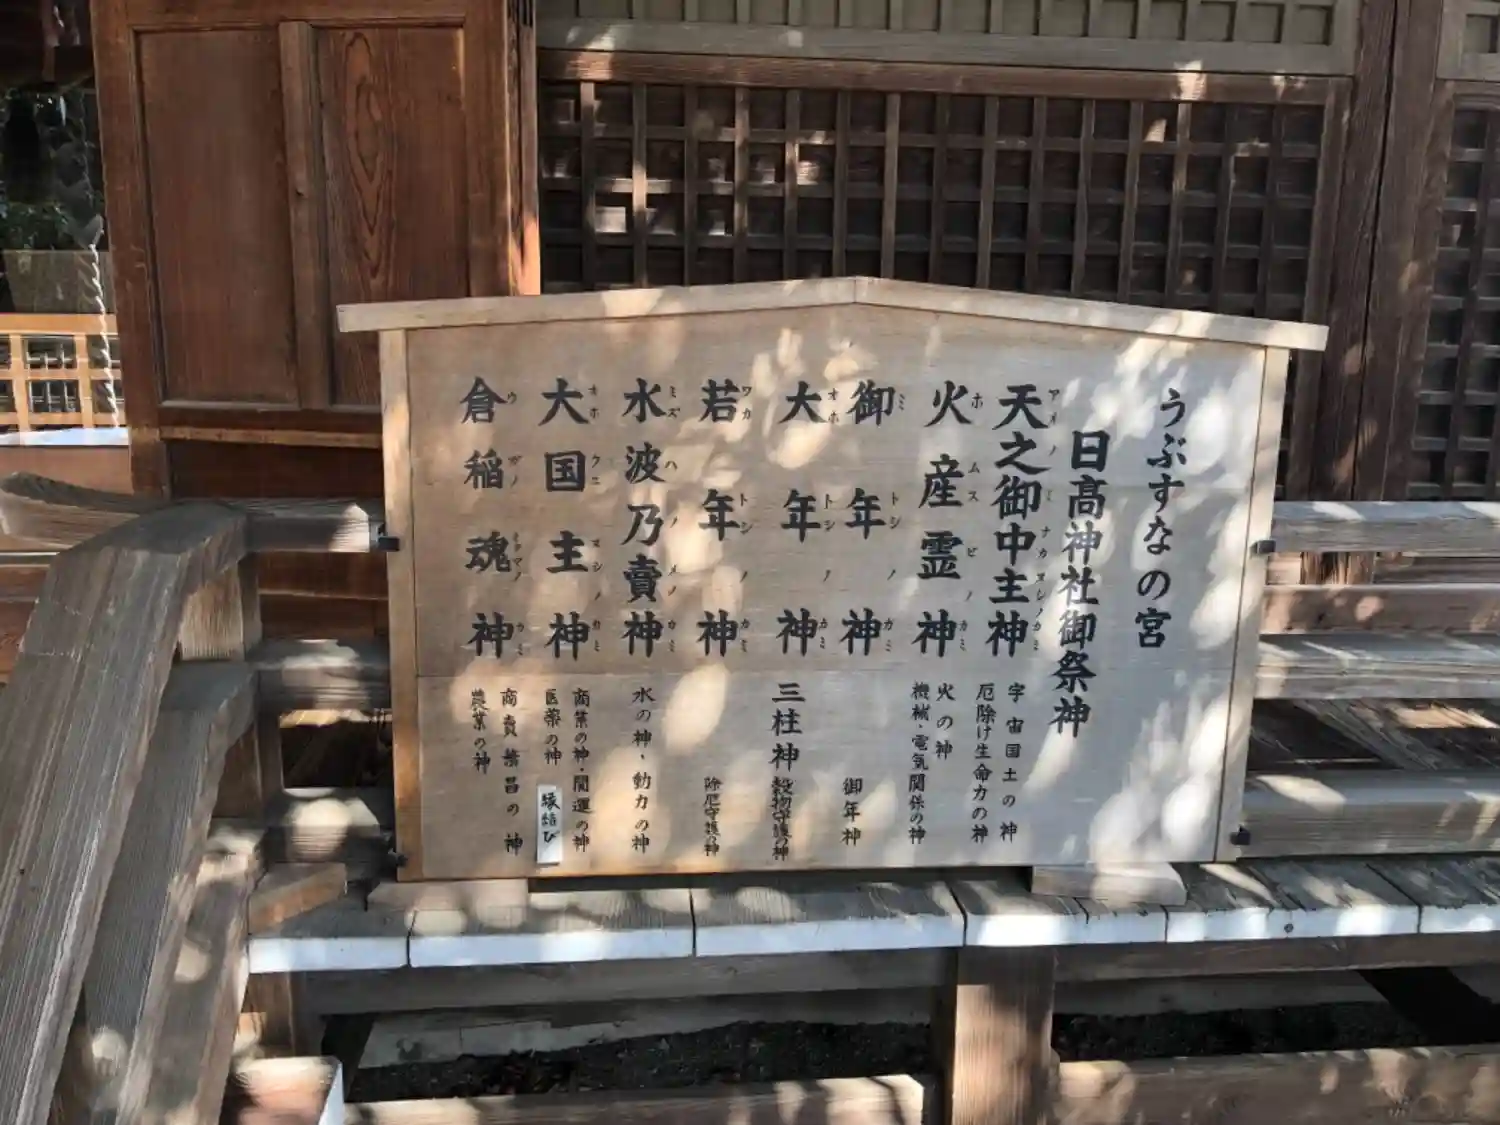 うぶすなの宮
日高神社御祭神
天之御中主神
アメノミナカヌシノカミ
宇宙国土の神
厄除け生命力の神
火産霊神
ホムスビノカミ
火の神
機械・電気関係の神
御年神
ミトシノカミ
御年神
大年神
オホトシノカミ
三柱神
穀物守護の神
若年神
ワカトシノカミ
除厄守護の神
水波乃賣神
ミズハノメノカミ
水の神、動力の神
大国主神
オホクニヌシノカミ
商業の神・開運の神
医薬の神
縁結び
倉稲魂神
ウガノミタマノカミ
商賣繁昌の神
農業の神